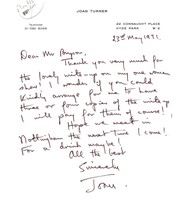 JOAN TURNER
22 CONNAUGHT PLACE
HYDE PARK W2
TELEPHONE
23rd May 1991.
Dear Mr
Thank you very much for
the lovely write-up on my one woman
show! I wonder if you could
kindly arrange for me to have
three or four copies of the write up
I will pay for them of course!
Hope we meet in
Nottingham the next time I come!
For a drink maybe!
All the best
Sincerely
Joan.